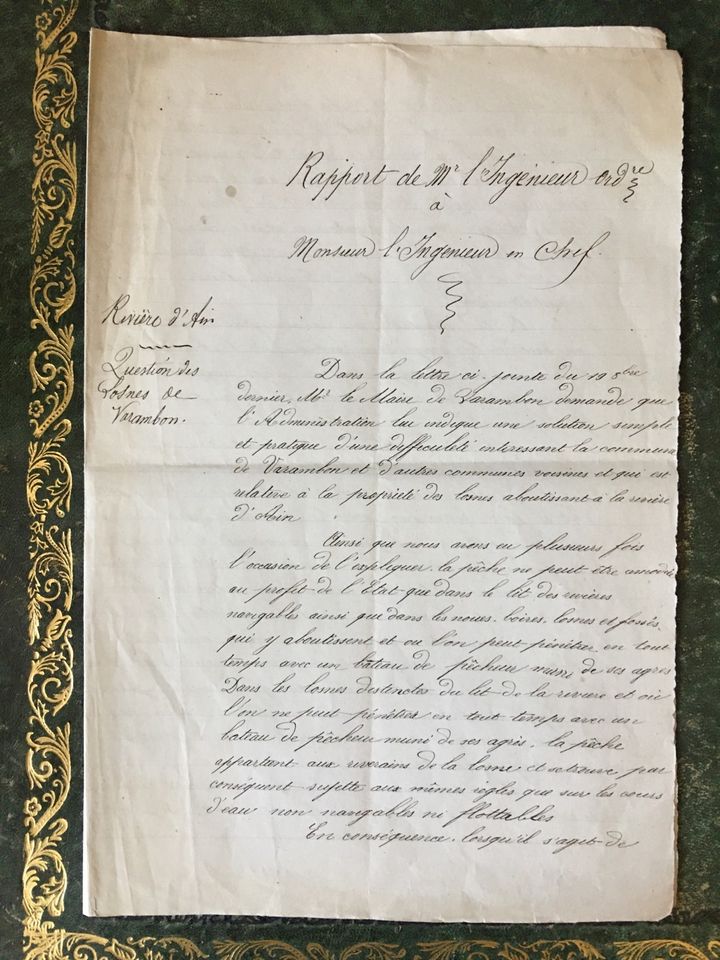 Rapport de Mr l'Ingénieur ordre
à
Monsieur l'Ingénieur en Chef.
Rivière d'Ain
Question des
Losnes de
Varambon.
Dans la lettre ci-jointe du 19 8bre
dernier, Mr le Maire de Varambon demande que
l'Administration lui indique une solution simple
et pratique d'une difficulté interessant la commune
de Varambon et d'autres communes voisines et qui est
relative à la propriété des losnes aboutissant à la rivière
d'Ain
Ainsi que nous avons eu plusieurs fois
l'occasion de l'expliquer, la pêche ne peut être amodiée
au profit de l'Etat que dans le lit des rivières
navigables ainsi que dans les noues, boires, losnes et fossés,
qui y aboutissent et ou l'on peut pénétrer en tout
temps avec un bateau de pêcheur muni de ses agrès
Dans les losnes distinctes du lit de la rivière et où
l'on ne peut pénétrer en tout temps avec un
bateau de pêcheur muni de ses agrès, la pêche
appartient aux riverains de la losne et se trouve par
conséquent sujette aux mêmes règles que sur les cours
d'eau non navigables ni flottables
En conséquence, lorsqu'il s'agit de